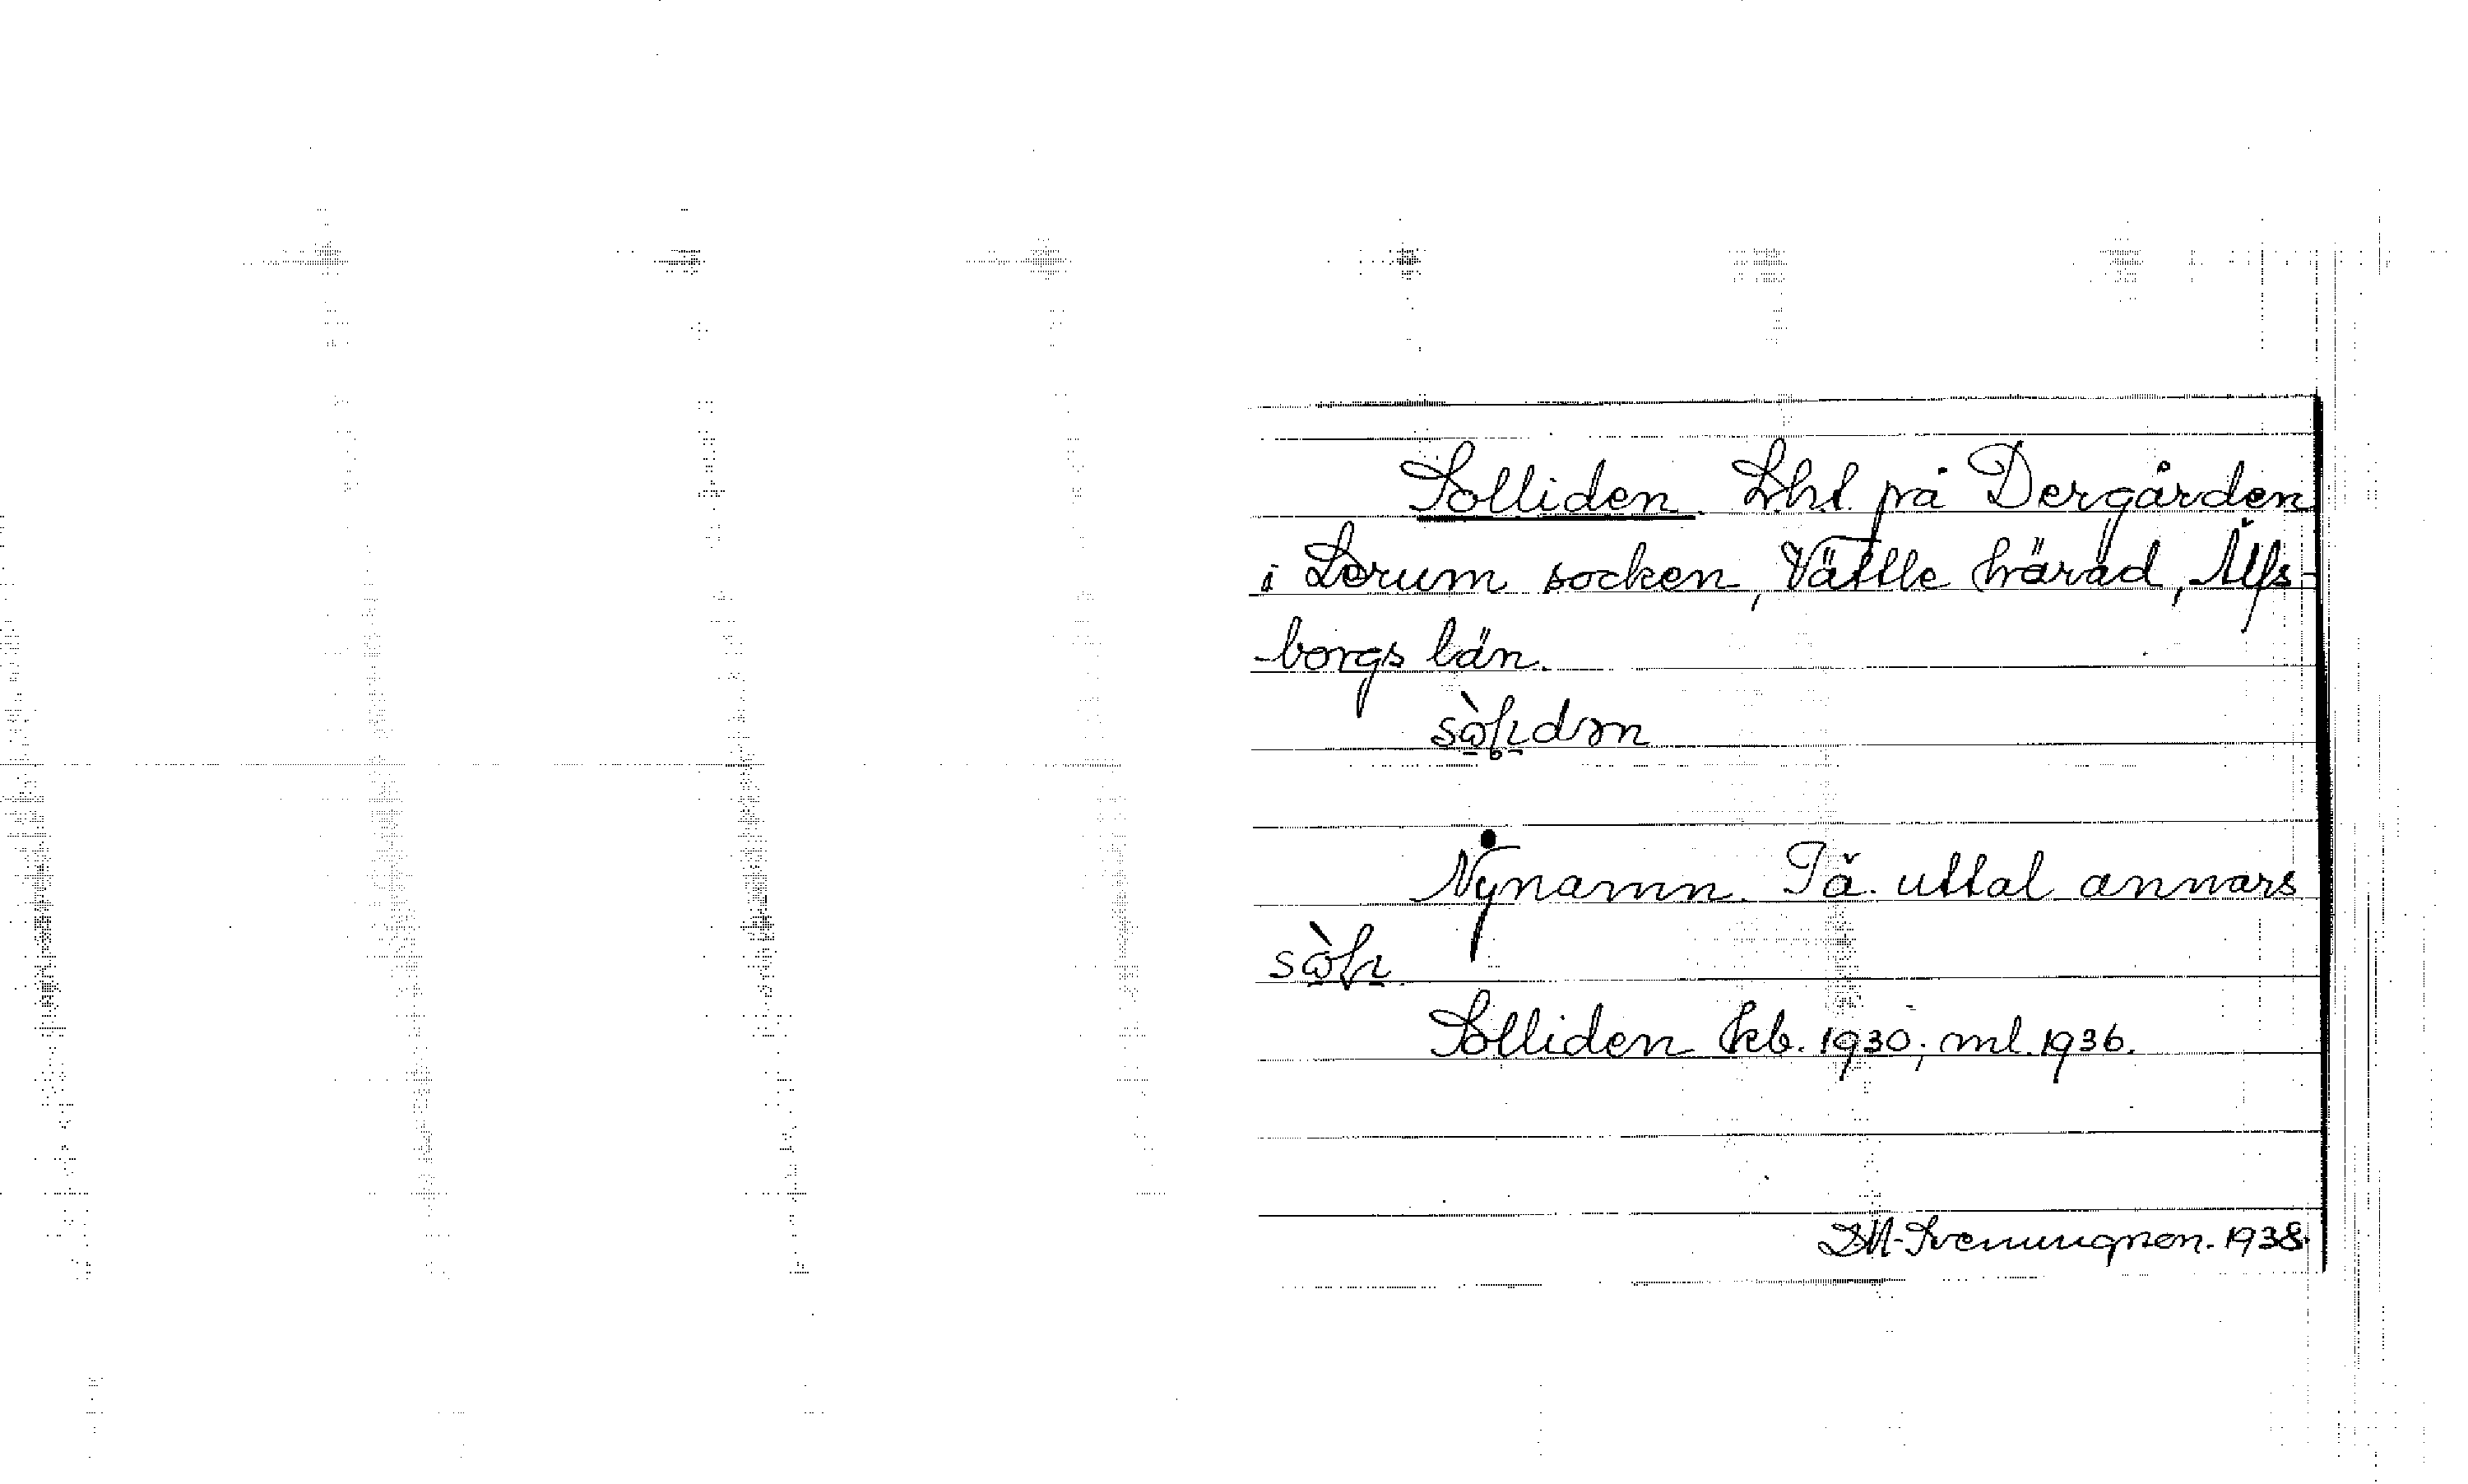 Solliden. Lht. på Dergården
i Lerum socken, Vättle härad, Älfs-
borgs län.
Nynamn. Få. uttal annars
Solliden kb. 1930; ml. 1936.
D.M. Svenungson. 1938.